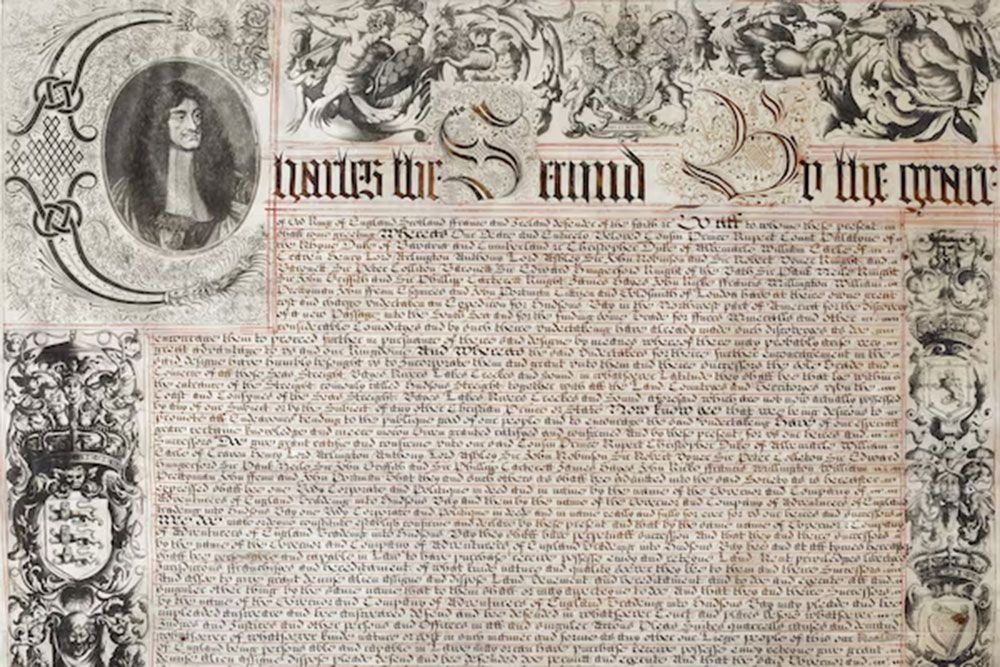 Charles the Second By the grace
of God King of England Scotland ffrance and Ireland defender of the faith &c To all to whome these presents
shall come greeting Whereas Our Deare and entirely Beloved Cousin Prince Rupert Count Palatyne of
the Rhyne Duke of Bavaria and Cumberland &c Christopher Duke of Albemarle William Earle of
Craven Henry Lord Arlington Anthony Lord Ashley Sir John Robinson and Sir Robert Vyner Knights and
Baronetts Sir Peter Colliton Baronett Sir Edward Hungerford Knight of the Bath Sir Paul Neile Knight
Sir John Griffith and Sir Phillipp Carterett Knights James Hayes John Kirke ffrancis Millington William
Prettyman John ffenn Esquires and John Portman Cittizen and Goldsmith of London have at theire owne great
cost and charges undertaken an Expedicion for Hudsons Bay in the Northwest part of America for the discovery
of a new Passage into the South Sea and for the finding some Trade for ffurrs Mineralls and other
considerable Comodityes and by such theire undertakeing have already made such discoveryes as doe
encourage them to proceed further in pursuance of theire said designe by meanes whereof there may probably arise very
great advantage to us and our Kingdome And Whereas the said Undertakers for theire further encouragement in the
said designe have humbly besought us to Incorporate them and grant unto them and theire successors the sole Trade and
Comerce of all those Seas Streights Bayes Rivers Lakes Creekes and Sounds in whatsoever Latitude they shall bee that lie within
the entrance of the Streights comonly called Hudsons Streights together with all the Lands Countryes and Territoryes upon the
Coasts and Confynes of the Seas Streights Bayes Lakes Rivers Creekes and Sounds aforesaid which are not now actually possessed
by any of our Subjects or by the Subjects of any other Christian Prince or State Now know yee that wee being desirous to
promote all Endeavours tending to the publique good of our people and to encourage the said undertakeing Have of our especiall
grace certaine knowledge and meere mocion Given granted ratifyed and confirmed And by these presents for us our heires and
Successors Doe give grant ratifie and confirme unto our said Cousin Prince Rupert Christopher Duke of Albemarle William
Earle of Craven Henry Lord Arlington Anthony Lord Ashley Sir John Robinson Sir Robert Vyner Sir Peter Colleton Sir Edward
Hungerford Sir Paul Neile Sir John Griffith and Sir Phillipp Carterett James Hayes John Kirke ffrancis Millington William
Prettyman John ffenn and John Portman That they and such others as shall bee admitted into the said Society as is hereafter
expressed shall bee one Body Corporate and Politique in deed and in name by the name of the Governor and Company of
Adventurers of England tradeing into Hudsons Bay and them by the name of the Governor and Company of Adventurers of England
tradeing into Hudsons Bay one Body Corporate and Politique in deed and in name really and fully for ever for us our heires and successors
Wee doe make ordeyne constitute establish confirme and declare by these presents and that by the same name of Governor and Company
of Adventurers of England Tradeing into Hudsons Bay they shall have perpetuall succession And that they and theire successors
by the name of the Governor and Company of Adventurers of England Tradeing into Hudsons Bay bee and at all tymes hereafter
shall bee persons able and capable in Law to have purchase receive possesse enjoy and retayne Lands Rents priviledges libertyes
Jurisdiccions ffranchyses and hereditaments of what kinde nature and quality soever they bee to them and theire Successors
And alsoe to give grant demise alien assigne and dispose Lands Tenements and hereditaments and to doe and execute all and
singuler other things by the same name that to them shall or may apperteyne to doe And that they and theire Successors
by the name of the Governor and Company of Adventurers of England Tradeing into Hudsons Bay may pleade and bee
impleaded answeare and bee answeared defend and bee defended in whatsoever Courts and places before whatsoever
Judges and Justices and other persons and Officers in all and singuler Accions Pleas Suitts quarrells causes and demands
whatsoever of whatsoever kinde nature or sort in such manner and forme as any other our Liege people of this our Realme
of England being persons able and capable in Lawe may or can have purchase receive possesse enjoy reteyne give grant
demise alien assigne dispose pleade defend and bee defended doe permitt and execute And that the said